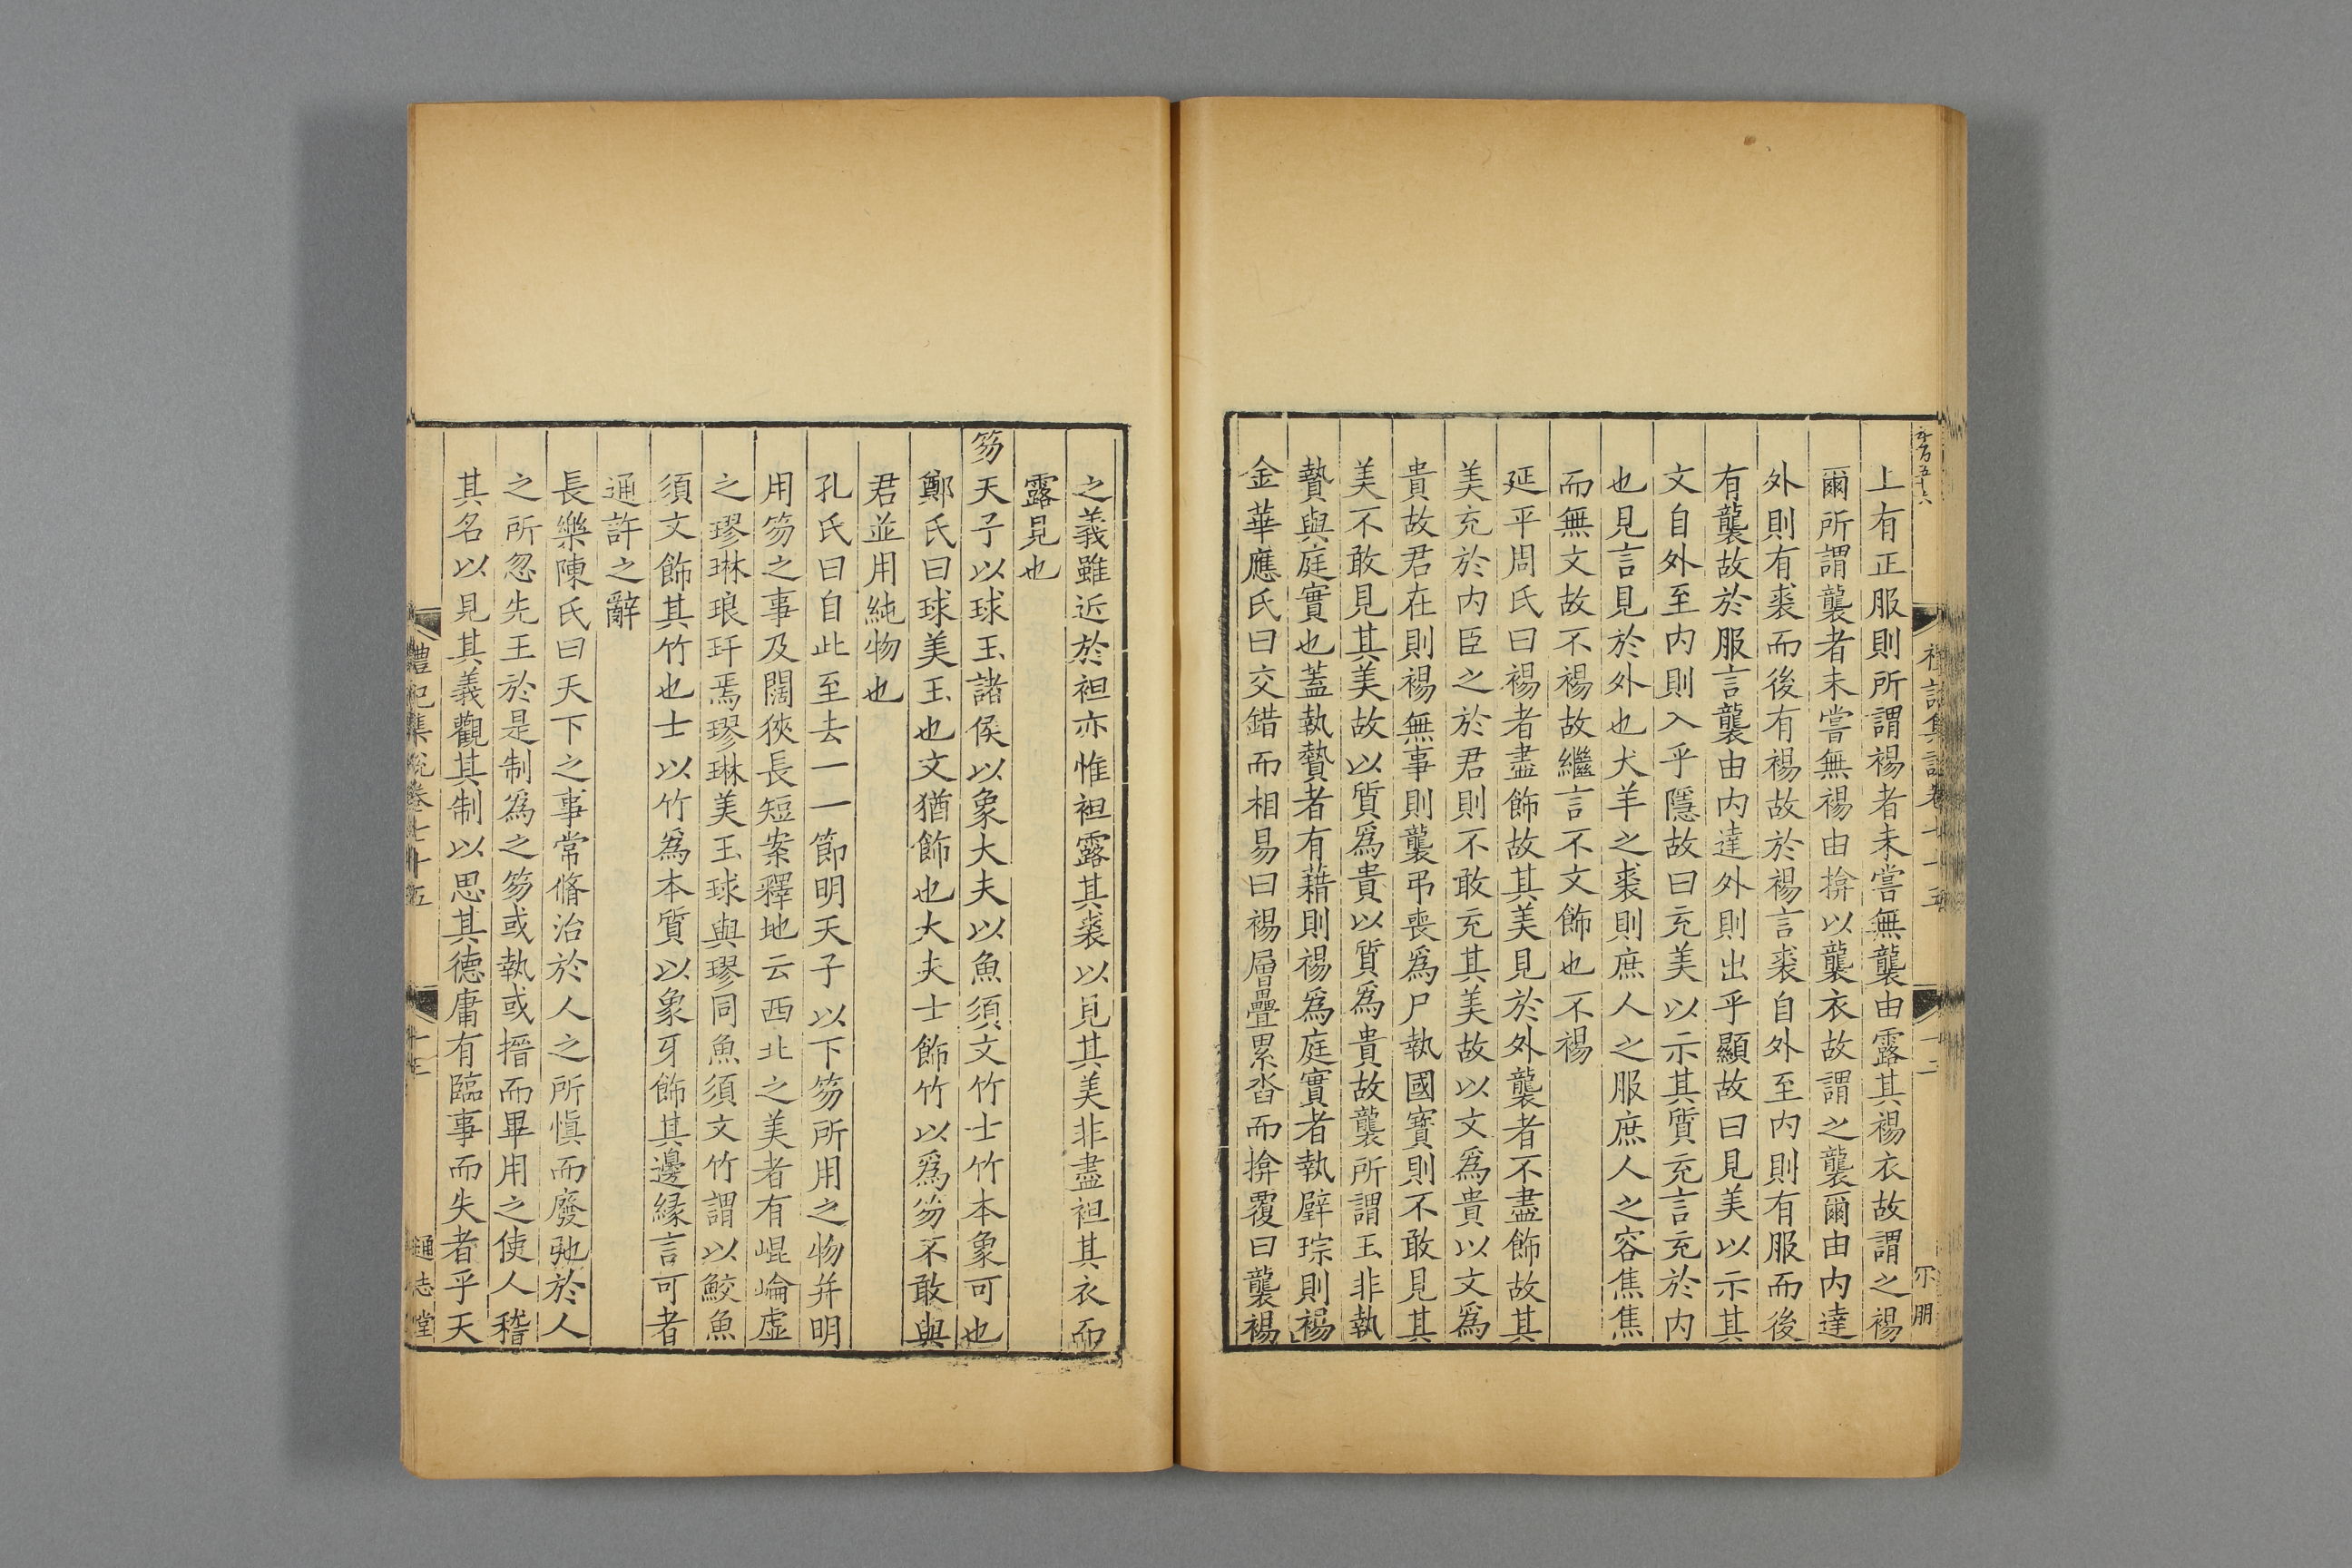 五百五十六
禮記集說卷七十五
十二
尔朋
上有正服則所謂裼者未嘗無襲由露其裼衣故謂之裼
爾所謂襲者未嘗無裼由揜以襲衣故謂之襲爾由內達
外則有裘而後有裼故於裼言裘自外至內則有服而後
有襲故於服言襲由內達外則出乎顯故曰見美以示其
文自外至內則入乎隱故曰充美以示其質充言充於內
也見言見於外也犬羊之裘則庶人之服庶人之容焦焦
而無文故不裼故繼言不文飾也不裼
延平周氏曰裼者盡飾故其美見於外襲者不盡飾故其
美充於內臣之於君則不敢充其美故以文為貴以文為
貴故君在則裼無事則襲弔喪為尸執國寶則不敢見其
美不敢見其美故以質為貴以質為貴故襲所謂玉非執
贄與庭實也蓋執贄者有藉則裼為庭實者執璧琮則裼
金華應氏曰交錯而相易曰裼層疊累沓而揜覆曰襲裼
之義雖近於袒亦惟袒露其裘以見其美非盡袒其衣而
露見也
笏天子以球玉諸侯以象大夫以魚須文竹士竹本象可也
鄭氏曰球美玉也文猶飾也大夫士飾竹以為笏不敢與
君並用純物也
孔氏曰自此至去一一節明天子以下笏所用之物并明
用笏之事及闊狹長短案釋地云西北之美者有崐崘虛
之璆琳琅玕焉璆琳美玉球與璆同魚須文竹謂以鮫魚
須文飾其竹也士以竹為本質以象牙飾其邊緣言可者
通許之辭
長樂陳氏曰天下之事常脩治於人之所愼而廢弛於人
之所忽先王於是制為之笏或執或搢而畢用之使人稽
其名以見其義觀其制以思其德庸有臨事而失者乎天
禮記集說卷七十五
十三
通志堂